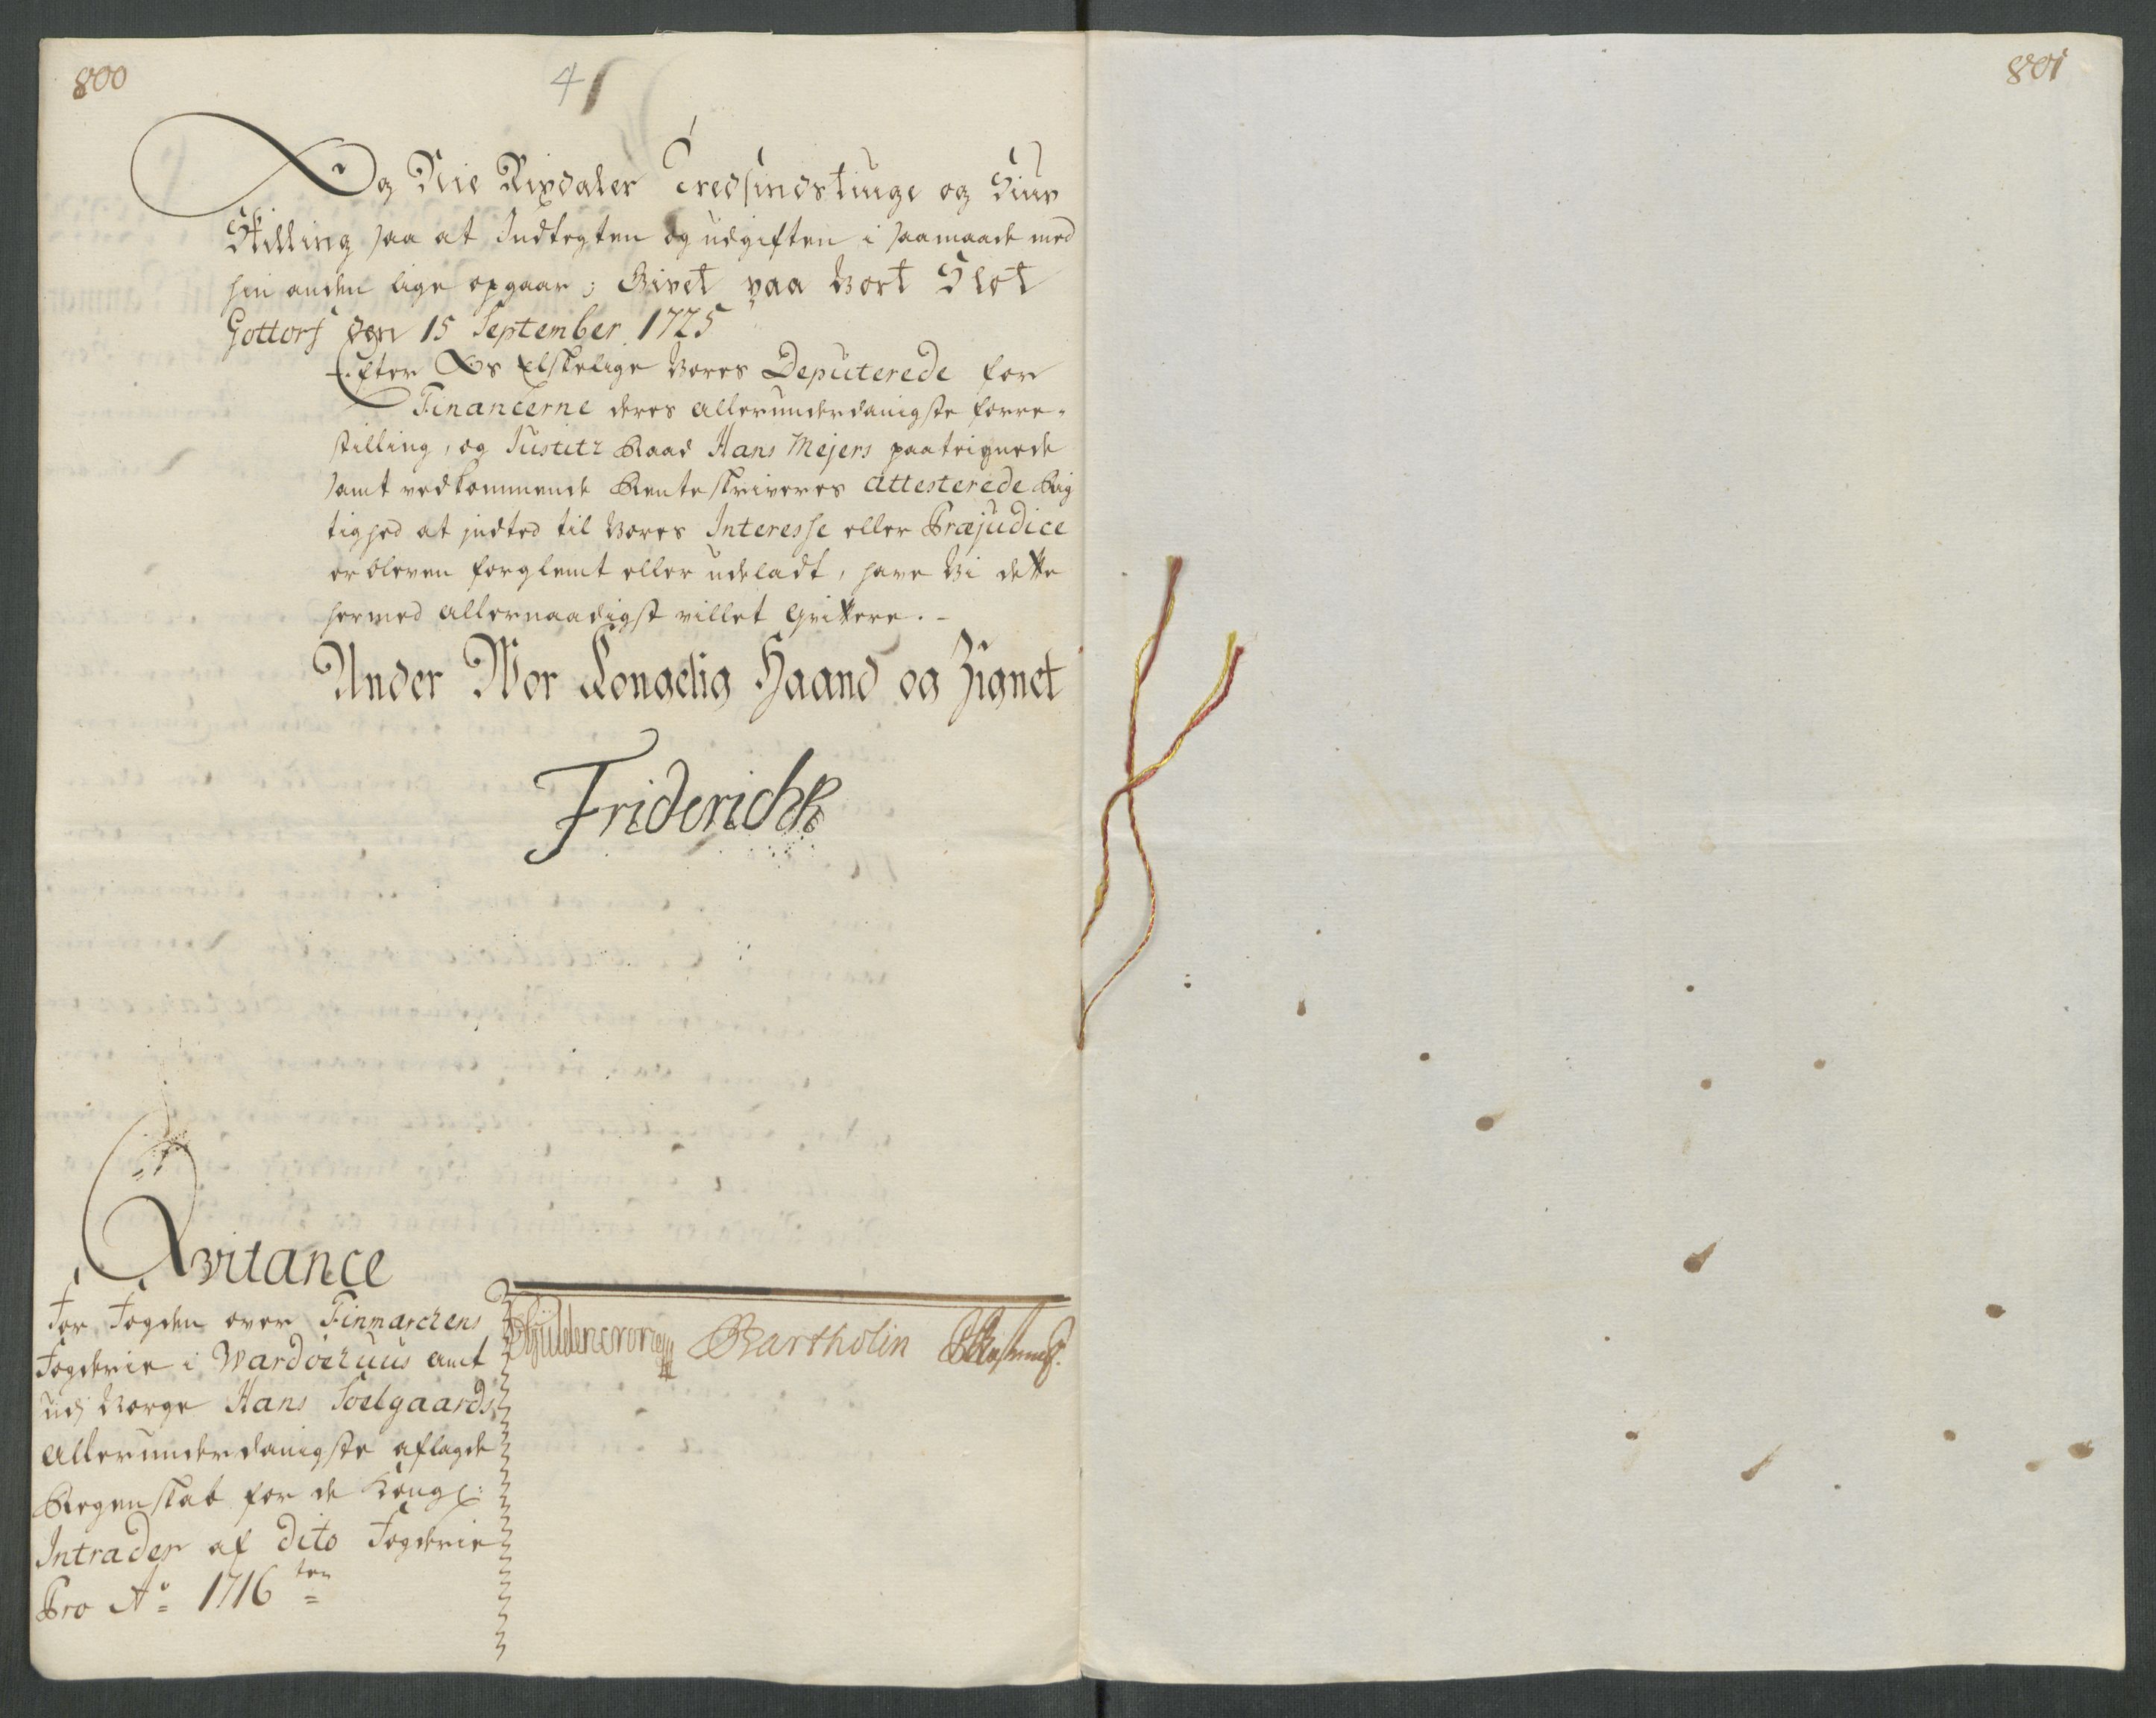 800
41
801
Og Nie Rixdaler Tredsindstiuge og Siuv
Skilling saa at Indtegten og udgiften i saamaade med
hin anden lige opgaar; Givet paa Vort Slot
Gottorf den 15 September 1725
Efter Os Elskelige Vores Deputerede for
Financerne deres allerunderdanigste forre-
stilling, og Justitz Raad Hans Mejers paateignede
samt vedkommende Renteskriveres attesterede Rig
tighed at indted til Vores Interesse eller Præjudice
er bleven forglemt eller udeladt, have Vi dette
hermed allernaadigst villet Qvittere. -
Under Wor Kongelig Haand og Zignet
Friderich R
Qvitance
For Fogden over Finmarchens
Fogderie i Wardøehuus amt
udj Norge Hans Soelgaards
allerunderdanigste aflagde
Regenskab for de Kongl:
Intrader af dito Fogderie
Pro Aº 1716 ten
Güldencrone Bartholin